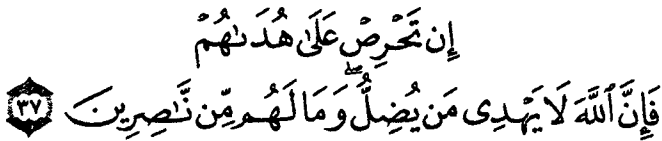 إِن تَحْرِصْ عَلَىٰ هُدَىٰهُمْ
فَإِنَّ ٱللَّهَ لَا يَهْدِى مَن يُضِلُّ ۖ وَمَا لَهُم مِّن نَّـٰصِرِينَ ٣٧